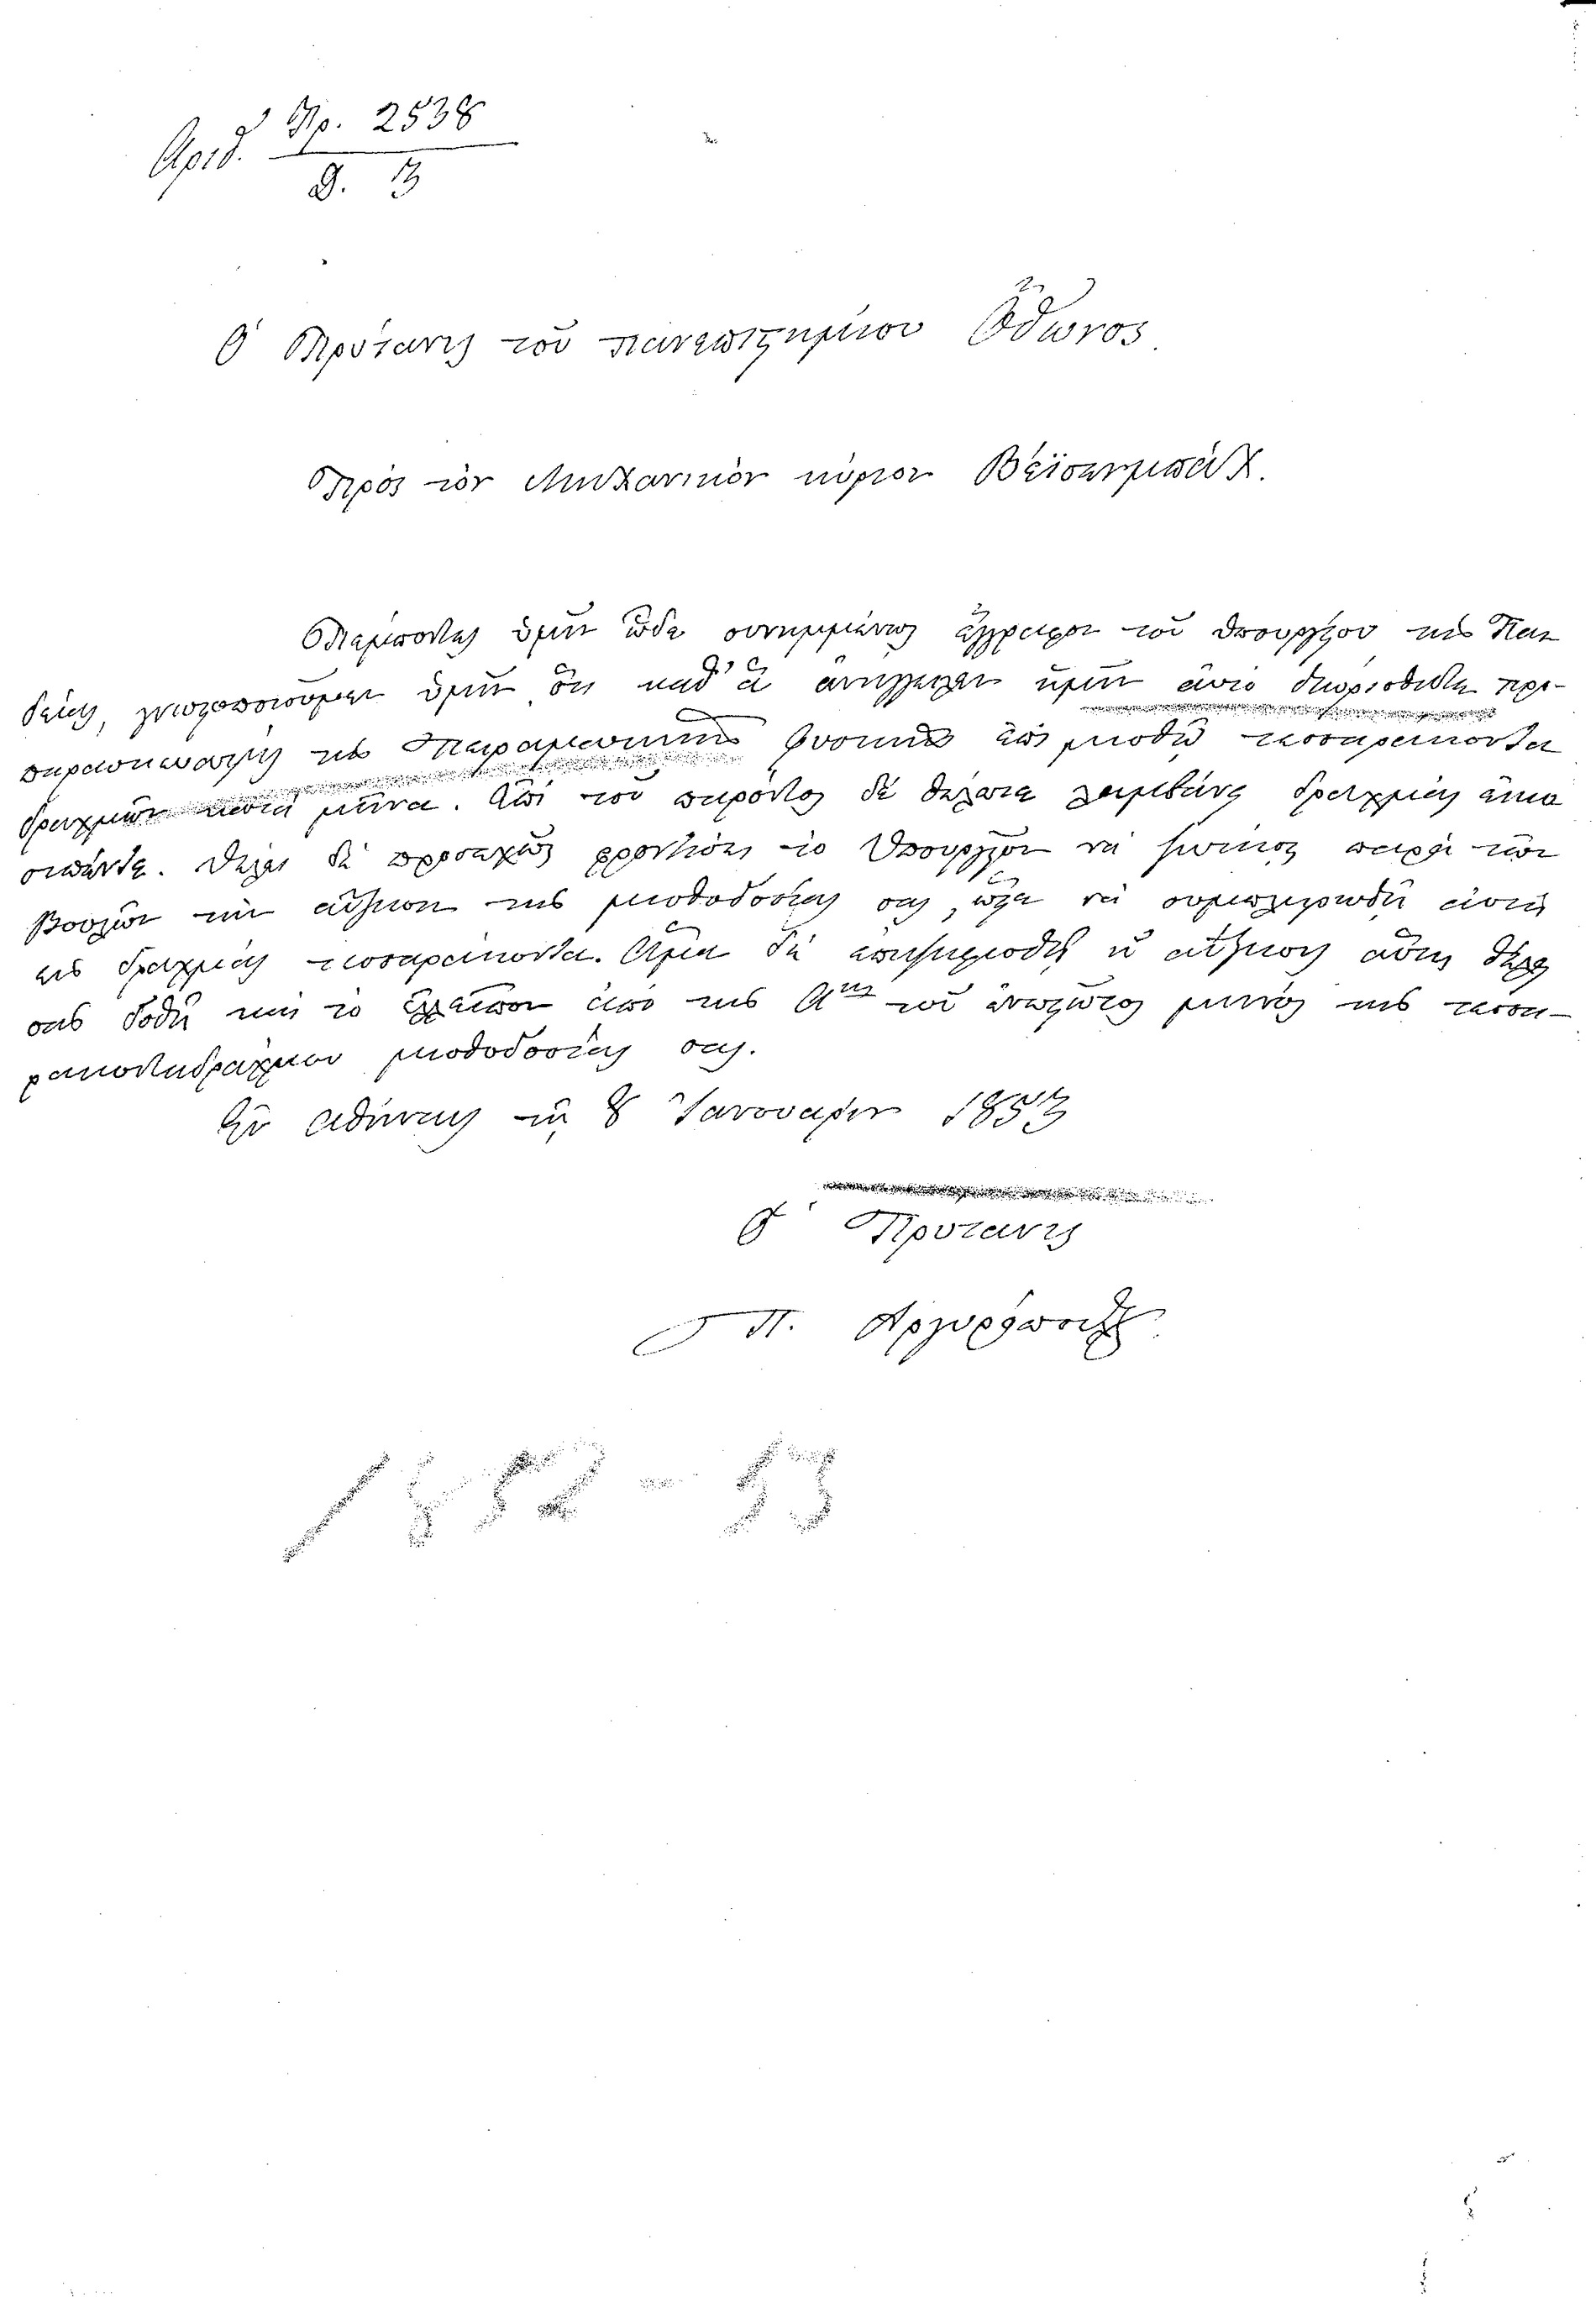 Ἀριθ. Πρ. 2538
Δ. 3
Ὁ Πρύτανις τοῦ πανεπιστημίου Ὄθωνος
Πρὸς τὸν Μηχανικὸν κύριον Βέϊσεμπαχ.
Πέμποντες ὑμῖν ὧδε συνημμένως ἔγγραφον τοῦ Ὑπουργείου τῆς Παι
δείας, γνωστοποιοῦμεν ὑμῖν ὅτι καθ' ἃ ἀνήγγειλεν ἡμῖν αὐτὸ διωρίσθητε προ-
παρασκευαστὴς τῆς Πειραματικῆς Φυσικῆς ἐπὶ μισθῷ τεσσαράκοντα
δραχμῶν κατὰ μῆνα. Ἀπὸ τοῦ παρόντος δὲ θέλετε λαμβάνει δραχμὰς εἴκο
σιπέντε. Θέλει δὲ προσεχῶς φροντίσει τὸ Ὑπουργεῖον νὰ ζητήσῃ παρὰ τῶν
Βουλῶν τὴν αὔξησιν τῆς μισθοδοσίας σας, ὥστε νὰ συμπληρωθῇ αὐτὴ
εἰς δραχμὰς τεσσαράκοντα. Ἅμα δὲ ἐπιψηφισθῇ ἡ αὔξησις αὕτη θέλει
σᾶς δοθῆ καὶ τὸ ἐλλεῖπον ἀπὸ τῆς Α<sup>ης</sup> τοῦ ἐνεστῶτος μηνὸς τῆς τεσσα-
ρακονταδράχμου μισθοδοσίας σας.
Ἐν Ἀθήναις τῇ 8 Ἰανουαρίου 1853
Ὁ Πρύτανις
Π. Ἀργυρόπουλος
1852-53